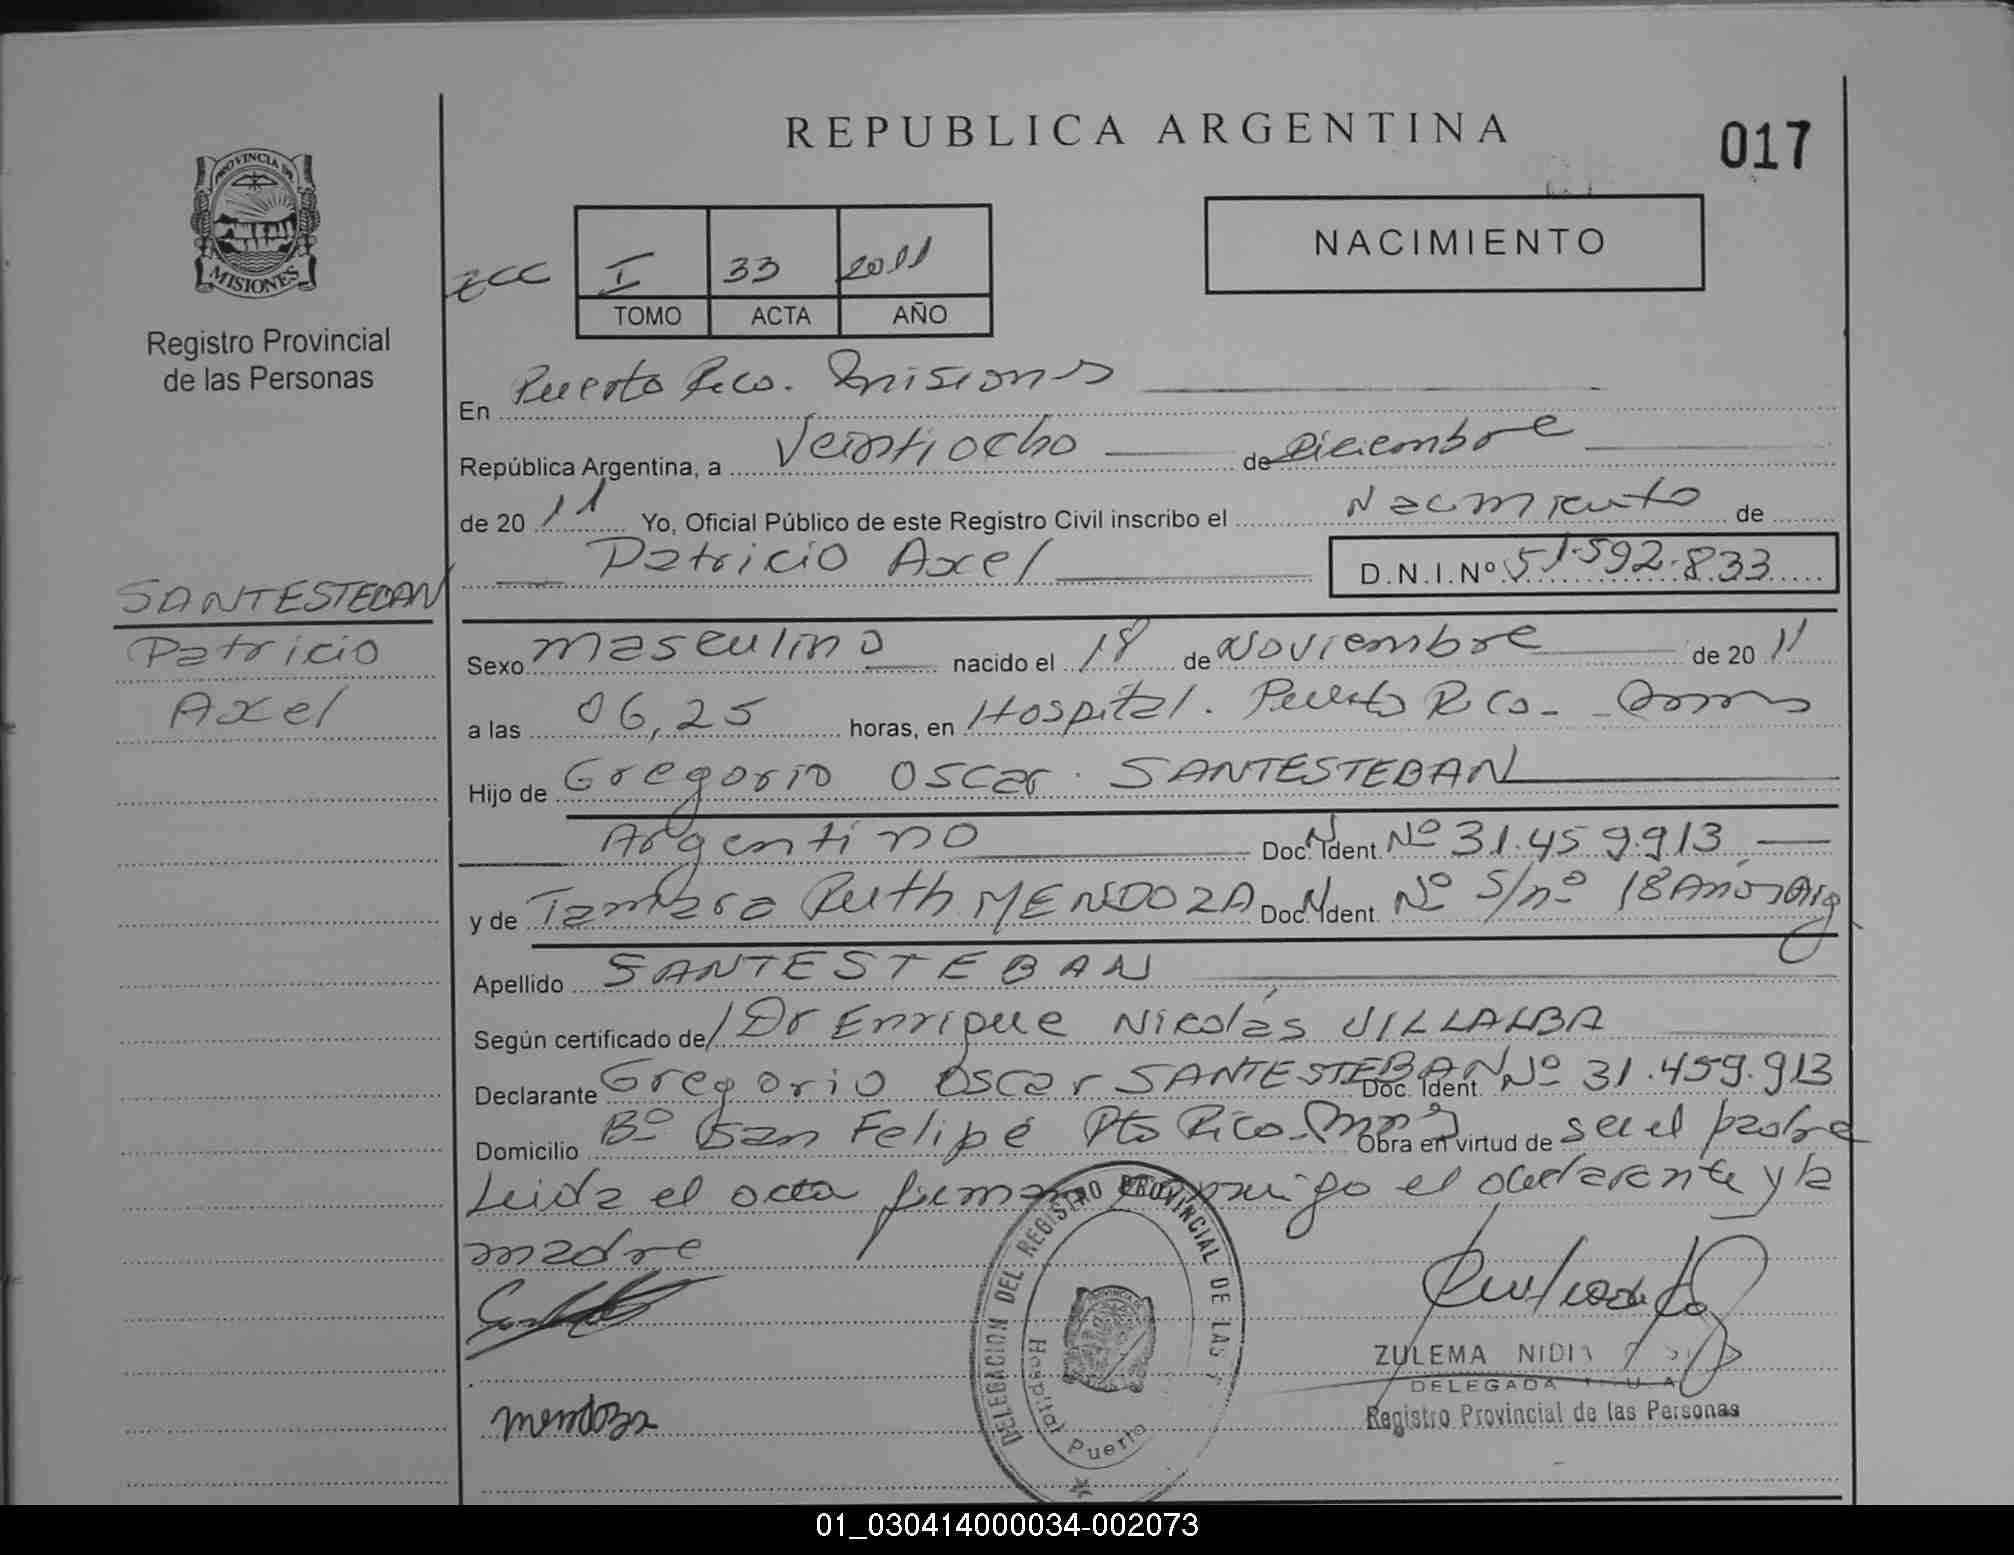 REPUBLICA ARGENTINA
017
PROVINCIA DE
MISIONES
Registro Provincial
de las Personas
zcc
I 33 2011
TOMO ACTA AÑO
NACIMIENTO
En Puerto Rico. Misiones
República Argentina, a Veintiocho de Diciembre
de 20 11 Yo, Oficial Público de este Registro Civil inscribo el Nacimiento de
Patricio Axel D.N.I.Nº 51.592.833
SANTESTEBAN
Patricio
Axel
Sexo masculino nacido el 18 de Noviembre de 20 11
a las 06,25 horas, en Hospital. Puerto Rico-
Hijo de Gregorio Oscar SANTESTEBAN
Argentino Doc. Ident. Nº 31.459.913
y de Tamara Ruth MENDOZA Doc. Ident. Nº S/nº 18 Años Arg
Apellido SANTESTEBAN
Según certificado de Dr Enrique Nicolás VILLALBA
Declarante Gregorio Oscar SANTESTEBAN Doc. Ident. Nº 31.459.913
Domicilio Bº San Felipe Pto Rico-Mnes Obra en virtud de ser el padre
Leida el acta firman conmigo el declarante y la
madre
DELEGACION DEL REGISTRO PROVINCIAL DE LAS
Hospital Puerto
mendoza
ZULEMA NIDIA
DELEGADA
Registro Provincial de las Personas
01_030414000034-002073